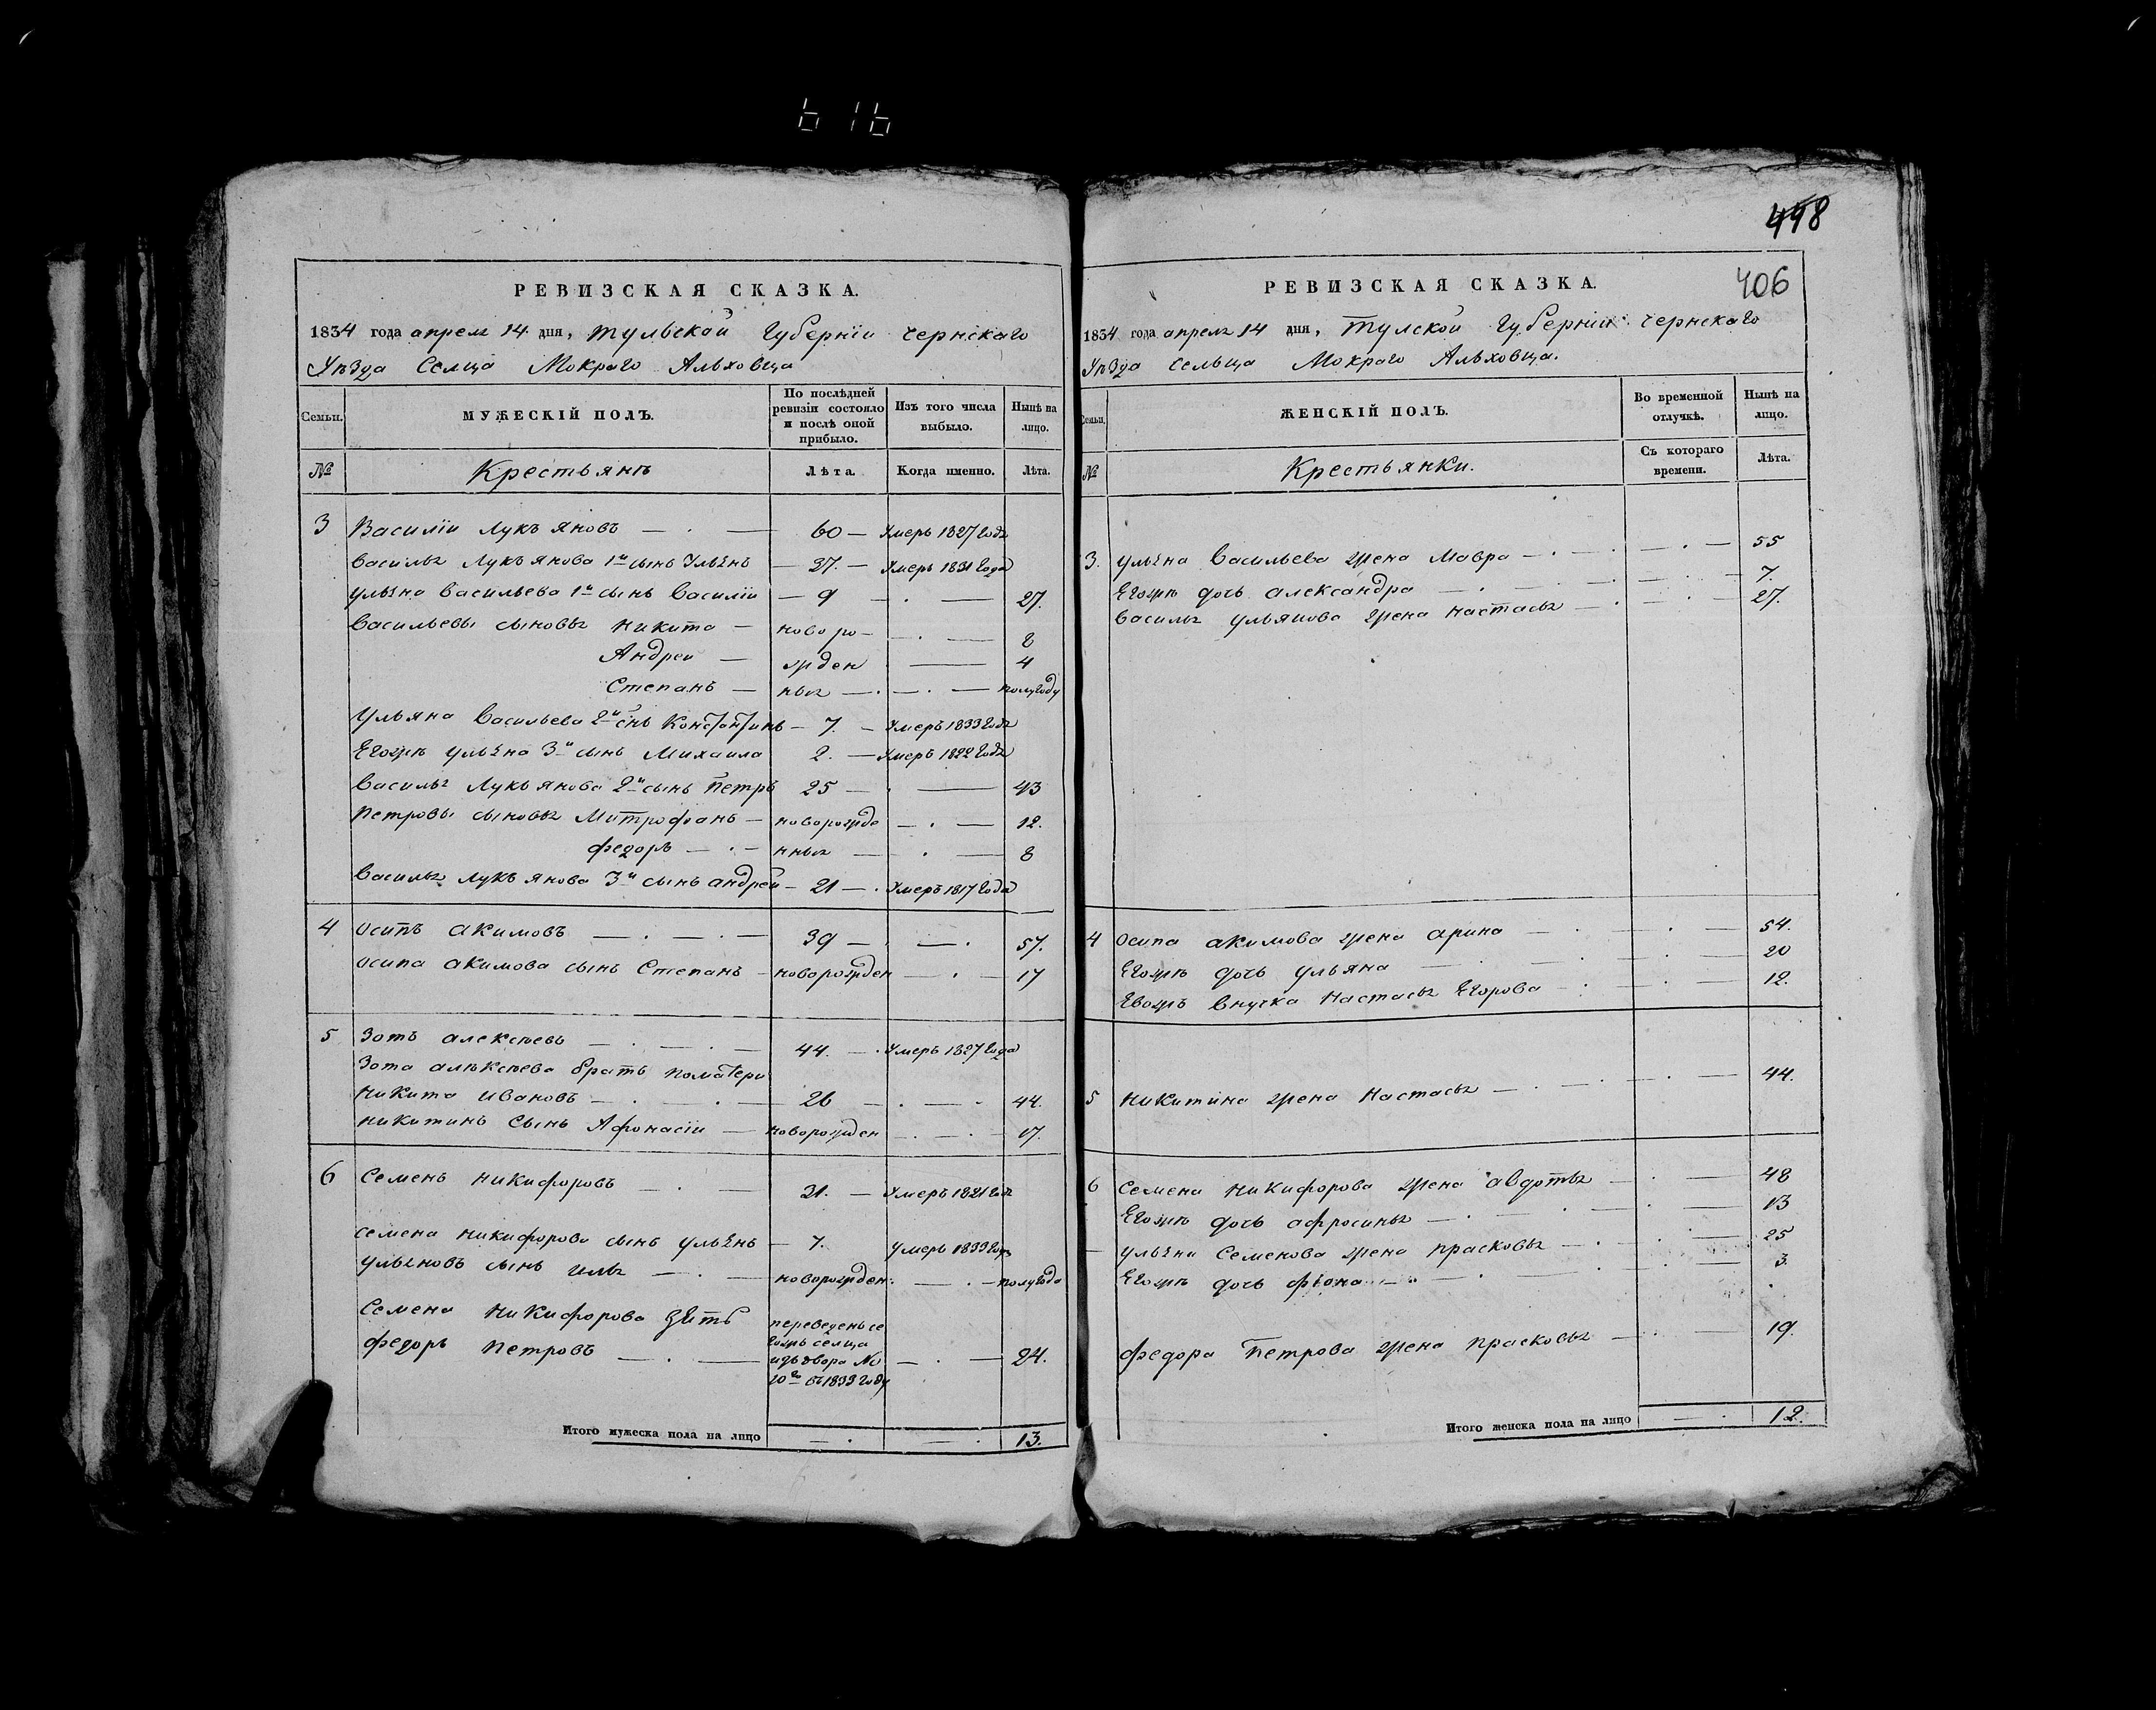 616
РЕВИЗСКАЯ СКАЗКА.
1834 года апреля 14 дня, Тульской Губернїи Чернскаго
Уѣзда Селца Мокраго Альховца
Семьи. МУЖЕСКІЙ ПОЛЪ. По послѣдней ревизіи состояло и послѣ оной прибыло. Изъ того числа выбыло. Нынѣ на лицо.
№ Крестьянѣ Лѣта. Когда именно. Лѣта.
3 Василїи Лукъяновъ — 60 — Умеръ 1827 года
Василья Лукъянова 1й сынъ Ульянъ — 37. — Умеръ 1831 года
Ульяна Васильева 1й сынъ Василїи — 9 — 27.
Васильевы сыновья Никита — новоро — 8
Андреи — жден — 4
Степанъ — ныя — полугоду
Ульяна Васильева 2й снъ Констонтинъ — 7. — Умеръ 1833 года
Егожѣ Ульяна 3й сынъ Михаила 2. — Умеръ 1822 года
Василья Лукъянова 2й сынъ Петръ 25 — 43
Петровы сыновья Митрофанъ — новорожде — 12.
Федоръ — нныя — 8
Василья Лукъянова 3й сынъ Андреи — 21 — Умеръ 1817 года
4 Осипъ Акимовъ — 39 — 57.
Осипа Акимова сынъ Степанъ — новорожден — 17
5 Зотъ Алексѣевъ — 44. — Умеръ 1827 года
Зота Алѣксѣева братъ поматери
Никита Ивановъ — 26 — 44.
Никитинъ Сынъ Афонасїи — новорожден — 17.
6 Семенъ Никифоровъ — 31. — Умеръ 1821 года
Семена Никифорова сынъ Ульянъ — 7. Умеръ 1833 года
Ульяновъ сынъ Илья — новорожден — полугода
Семена Никифорова зять переведенъ се
Федоръ Петровъ — гожъ селца — 24.
изъ двора №
10го въ 1833 году
Итого мужеска пола на лицо — 13.
498
406
РЕВИЗСКАЯ СКАЗКА.
1834 года апреля 14 дня, Тулской Губернїи Чернскаго
Уѣзда Сельца Мокраго Альховца.
Семьи. ЖЕНСКІЙ ПОЛЪ. Во временной отлучкѣ. Нынѣ на лицо.
№ Крестьянки. Съ котораго времени. Лѣта.
3. Ульяна Васильева жена Мавра — 55
Егожѣ дочь Александра — 7.
Василья Ульянова жена Настасья — 27.
4 Осипа Акимова жена Арина — 54.
Егожѣ дочь Ульяна — 20
Евожъ внучка Настасья Егорова — 12.
5 Никитина жена Настасья — 44.
6 Семена Никифорова жена Авдотья — 48
Егожѣ дочь Афросинья — 13
Ульяна Семенова жена Прасковья — 25
Егожѣ дочь Фїона — 3.
Федора Петрова жена Прасковья — 19.
Итого женска пола на лицо — 12.